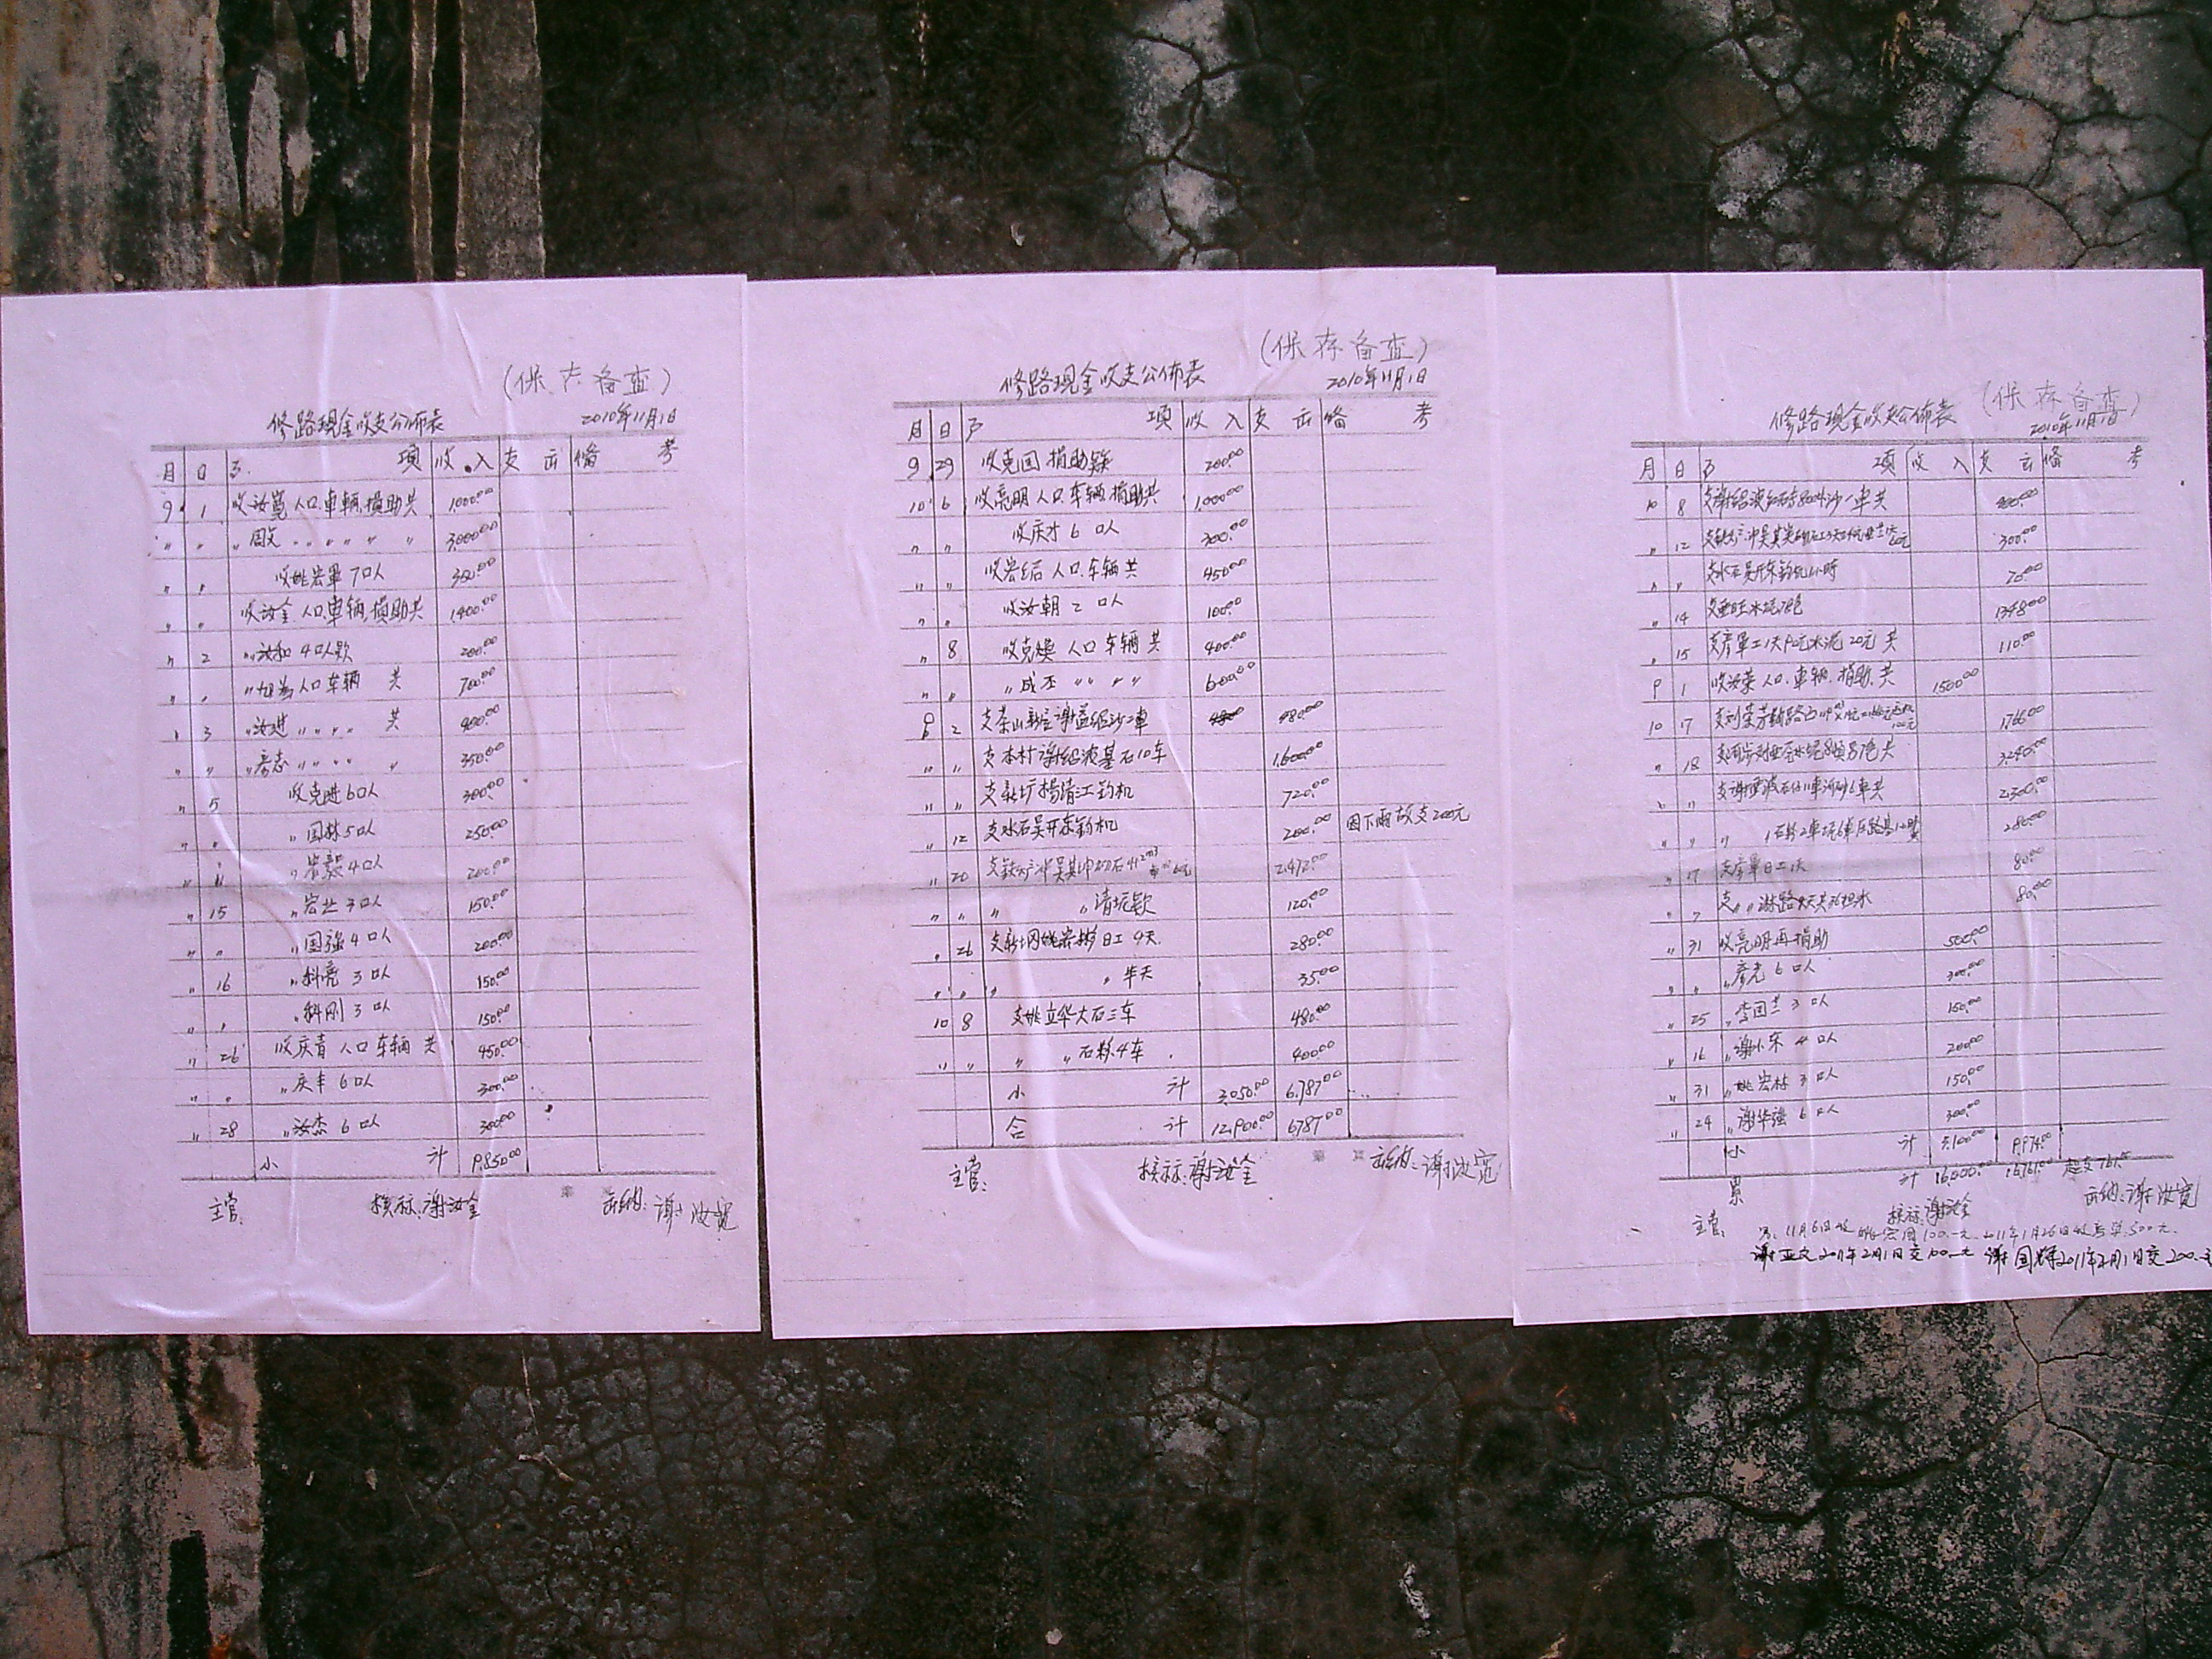 (保存备查)
修路现金收支公佈表 2010年11月1日
月 日 项 收入 支出 备考
9 1 收汝宽 人口.車辆.捐助共 1000.00
〃 〃 〃 〃 〃 〃 〃 3,000.00
〃 〃 收姚宏軍 7口人 350.00
〃 〃 收汝金 人口.車辆.捐助共 1,400.00
〃 2 〃汝和 4口人款 200.00
〃 〃 人口車辆 共 700.00
〃 3 〃汝进 〃 〃 〃 共 900.00
〃 〃 〃彦志 〃 〃 〃 〃 350.00
〃 5 收克进 6口人 300.00
〃 〃 〃国林 5口人 250.00
〃 11 〃 4口人 200.00
〃 15 〃宏业 3口人 150.00
〃 〃 〃国强 4口人 200.00
〃 16 〃科亮 3口人 150.00
〃 〃 〃科刚 3口人 150.00
〃 26 收庆青 人口车辆 共 450.00
〃 〃 〃庆丰 6口人 300.00
〃 28 〃汝杰 6口人 300.00
小计 9,850.00
主管: 核标:谢汝金 出纳:谢汝宽
(保存备查)
修路现金收支公佈表 2010年11月1日
月 日 项 收入 支出 备考
9 29 收克国 捐助款 200.00
10 6 收亮明 人口.车辆.捐助共 1,000.00
〃 〃 收庆才 6口人 300.00
〃 〃 收 人口.车辆共 450.00
〃 〃 收汝朝 2口人 100.00
〃 8 收克焕 人口车辆共 400.00
〃 〃 〃成丕 〃 〃 〃 〃 600.00
9 2 支茶山 谢益绍沙2車 480.00
〃 〃 支本村谢绍波基石10车 1,600.00
〃 〃 支 杨清江钩机 720.00
〃 12 支水石吴开东钩机 200.00 因下雨故支200元
〃 20 支 冲吴其 石 2,472.00
〃 〃 〃 〃清坑款 120.00
〃 26 支 姚 日工4天 280.00
〃 〃 〃 〃半天 35.00
10 8 支姚立华大石三车 480.00
〃 〃 〃 〃石粉4车 400.00
小计 3,050.00 6,787.00
合计 12,900.00 6787.00
主管: 核标:谢汝金 出纳:谢汝宽
(保存备查)
修路现金收支公佈表 2010年11月1日
月 日 项 收入 支出 备考
10 8 支谢绍波 沙一車共
〃 12 支 冲吴其 300.00
〃 〃 支水石吴开东钩机 小時 70.00
〃 14 支 水坭 1348.00
〃 15 支彦軍工1天 水泥20元共 110.00
9 1 收汝荣 人口.車辆.捐助.共 1500.00
10 17 支刘荣芳 路 1766.00
〃 18 支 水坭 共 3240.00
〃 〃 支谢 波石仔11車河砂6車共 2300.00
〃 〃 〃 石粉2車 280.00
〃 17 支彦軍日工1天 80.00
〃 〃 支〃〃淋路 水 80.00
〃 31 收亮明再捐助 500.00
〃 〃 〃彦光 6口人 300.00
〃 25 〃李国兰 3口人 150.00
〃 16 〃谢小宋 4口人 200.00
〃 31 〃姚宏林 3口人 150.00
〃 24 〃谢华强 6口人 300.00
小计 3,100.00 9,974.00
累计 16,000.00 16,761.00 超支761元
主管: 核标:谢汝金 出纳:谢汝宽
另:11月6日收姚宏周100.-元. 2011年1月26日收 500元.
谢亚文2011年2月1日交100.-元 谢国辉2011年2月1日交200.-元